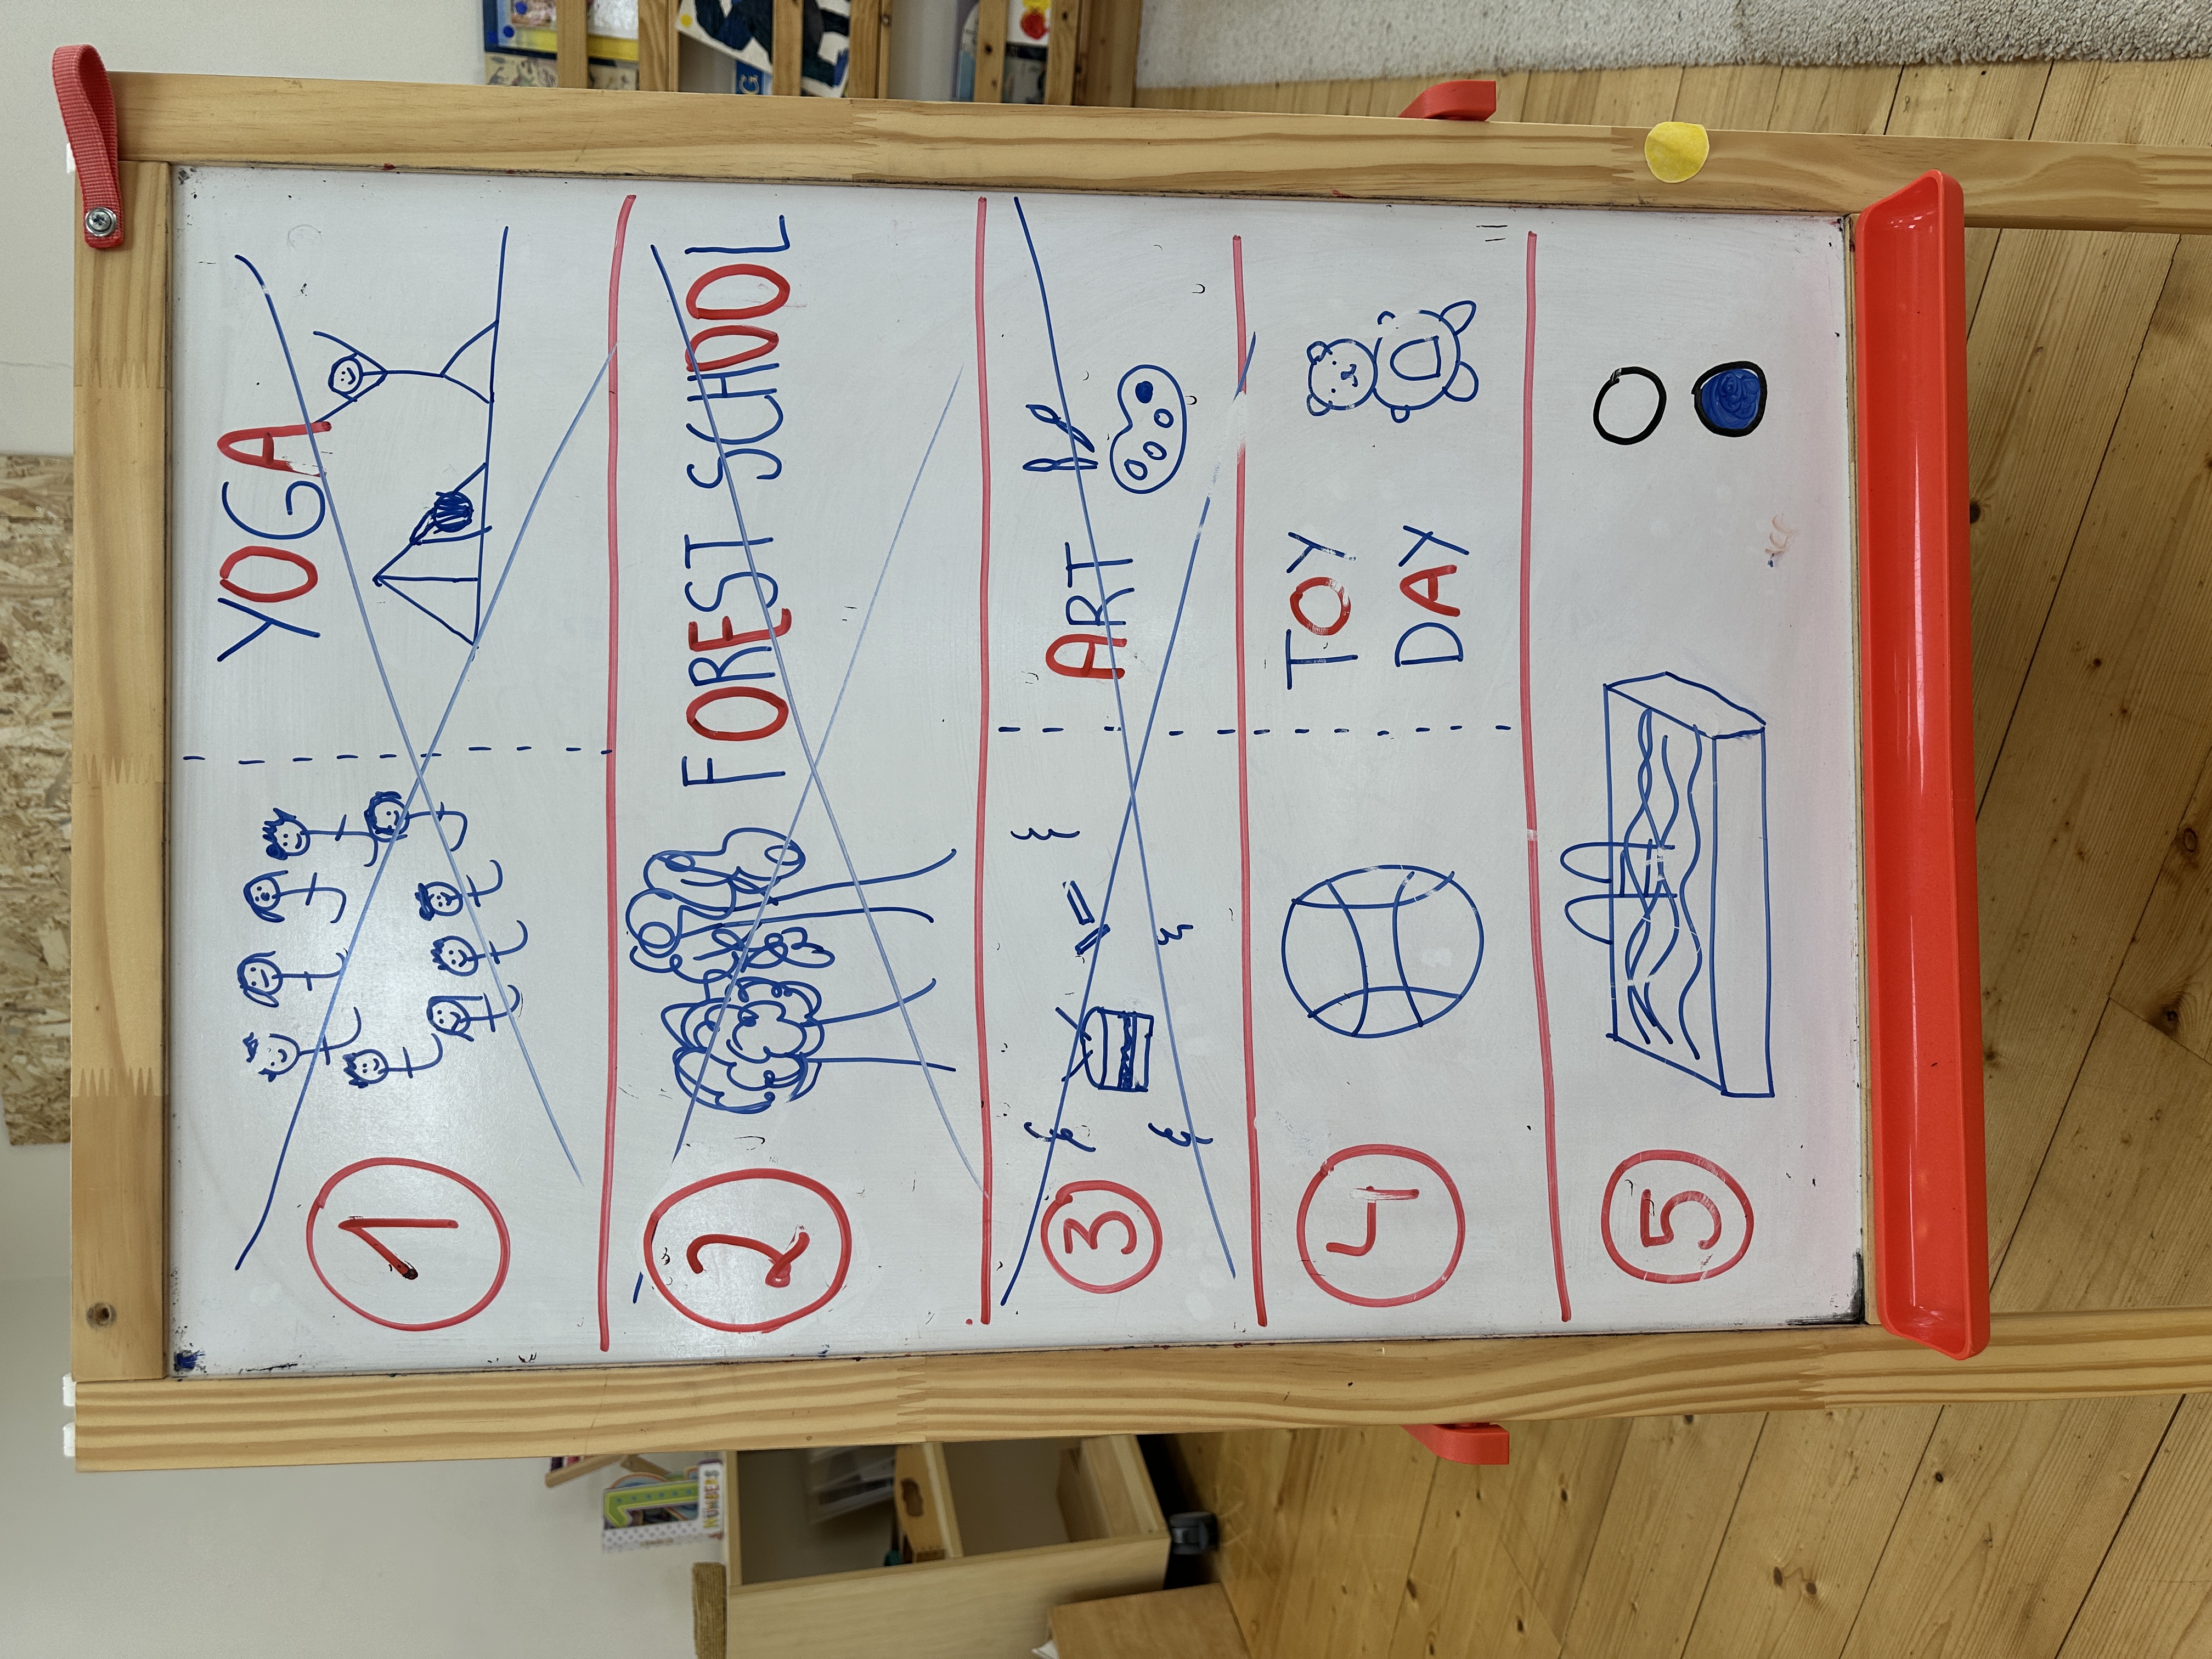 1 YOGA
2 FOREST SCHOOL
3 ART
4 TOY
DAY
5
1
NUMBERS
G